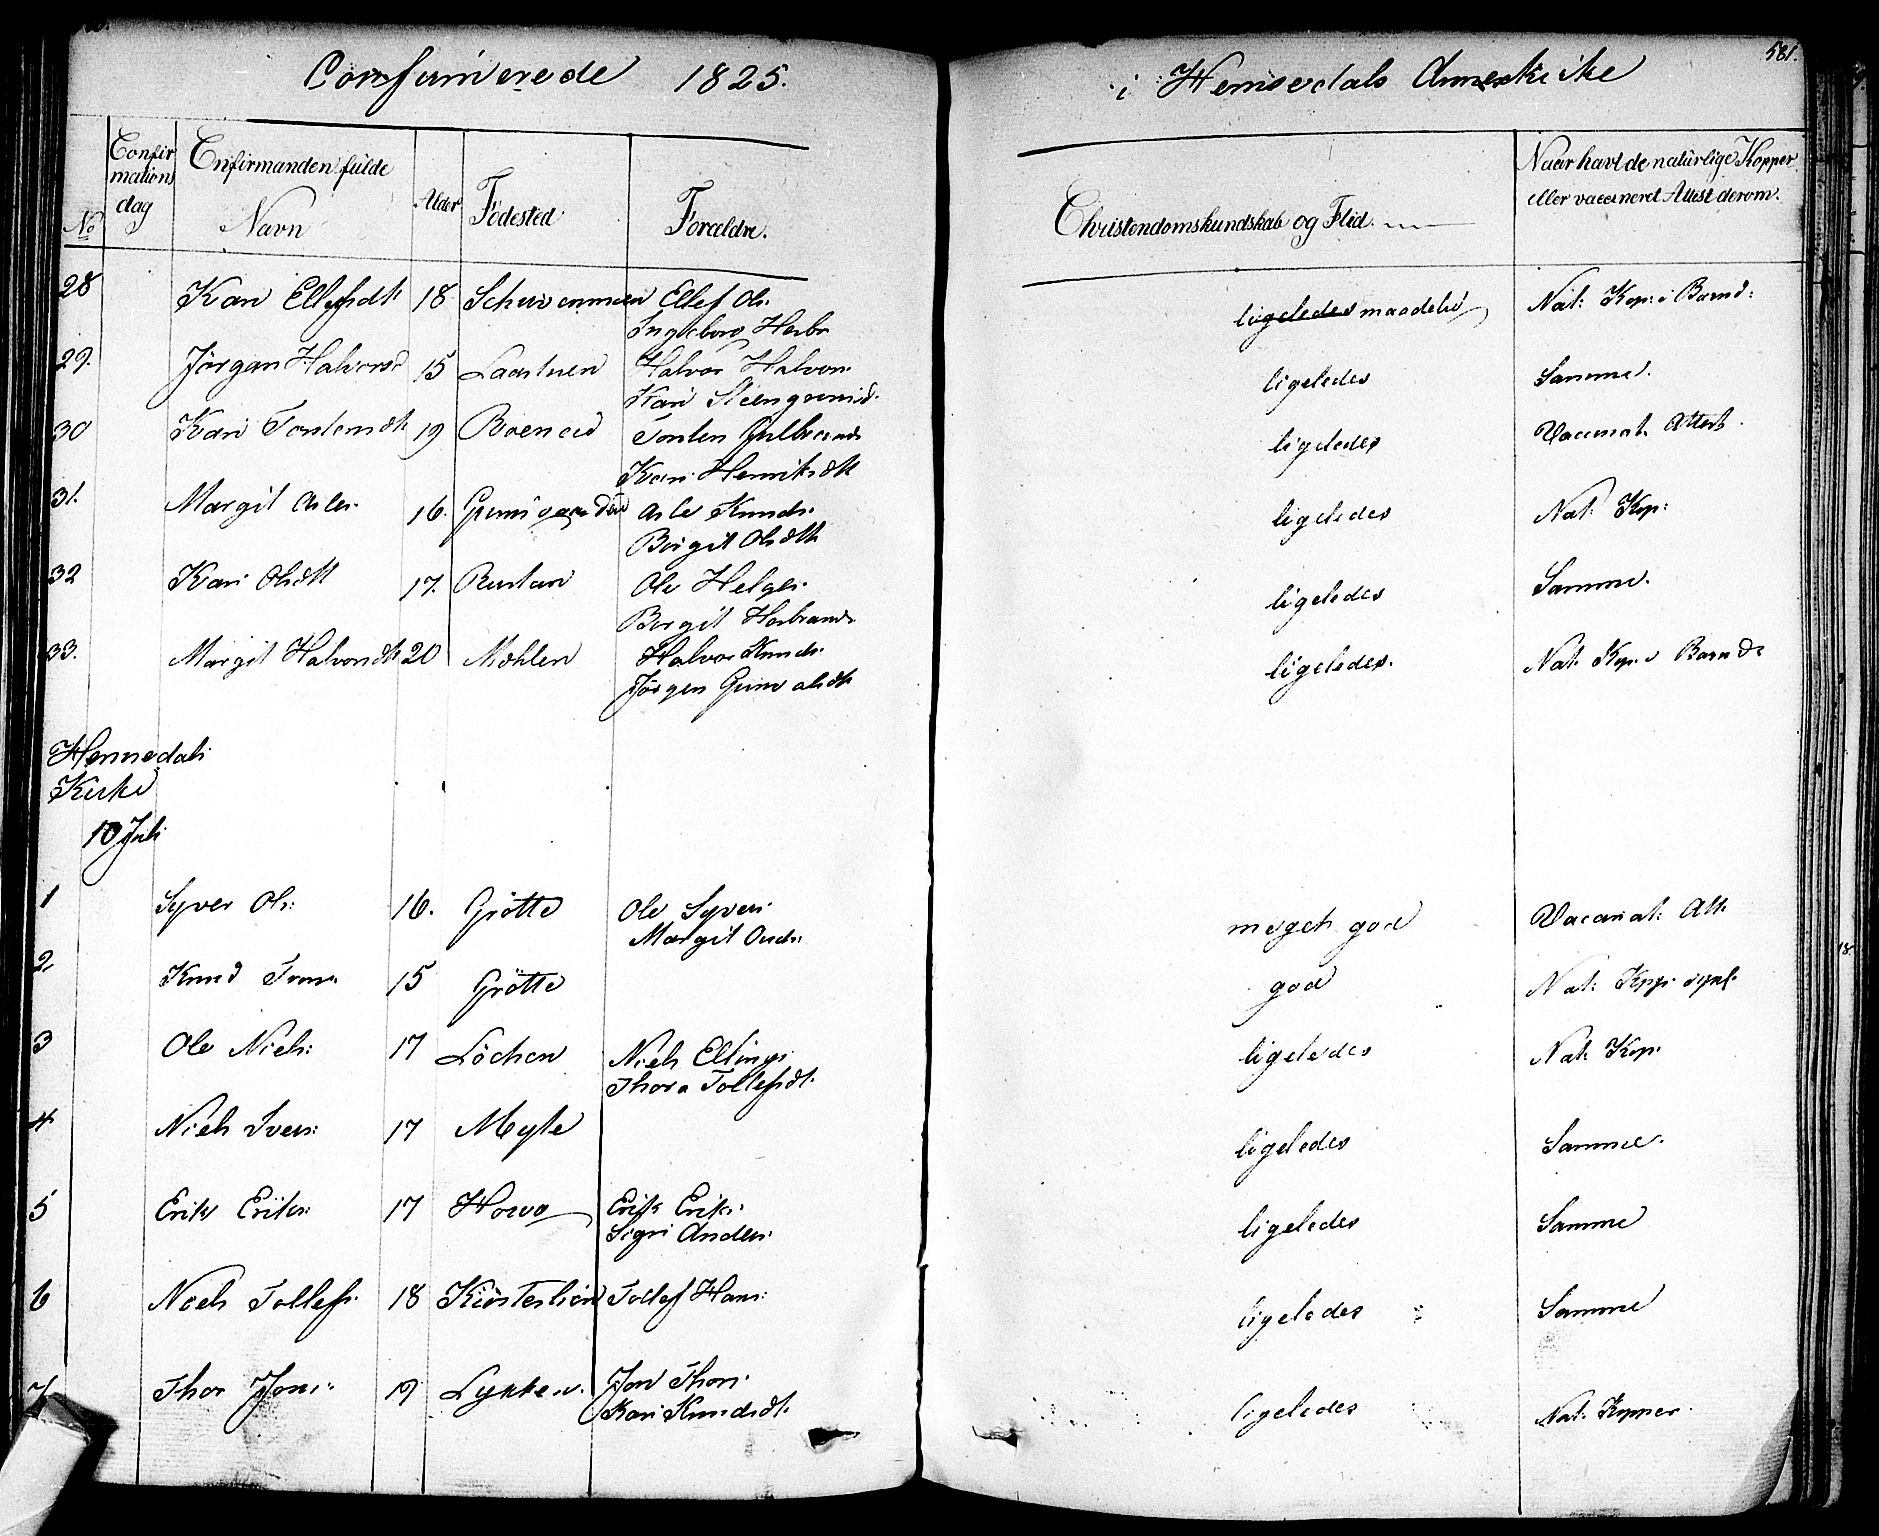 Confirmerede 1825.
i Hemsedals Annexkirke
581.
No
Confirmations dag
Confirmanden fulde Navn
Alder
Födested
Forældre.
Christendomskundskab og Flid.
Naar havt de natürlige Kopper eller vaccineret Attest derom.
28 Kari Ellefsdtr 18 Ellef Ols: ligeledes maadelid Nat: Kop: i Barnd:
Ingeborg Herbr
29. Jörgan Halvorsd 15 Halvor Halvors: ligeledes Samme.
Kari Steengrimsd.
30 Kari Torstensdtr 19 Torsten Gulbrands ligeledes Vaccinat. Attest.
Kari Henriksdtr
31. Margit Asles: 16. Asle Knuds: ligeledes Nat: Kop:
Birgit Olsdtr
32 Kari Olsdtr 17. Rustan Ole Helges: ligeledes Samme.
Birgit Herbrands
33. Margit Halvorsdtr 20 Möhlen Halvor Knuds: ligeledes. Nat. Kop: i Barnd:
Jörgen
Hemsedals
Kirke
10 Juli
1 Syver Ols: 16. Grötte Ole Syvers: meget god Vaccinat: Att.
Margit
2 Knud 15 Grötte god Nat: Kop:
3 Ole Niels: 17 Löchen Niels Ellings: ligeledes Nat: Kop:
Thora Tollefsdt.
4 Niels Ivers: 17 Myte ligeledes Samme.
5 Erik Eriks: 17 Howe Erik Eriks: ligeledes Samme
Sigri Anders:
6 Niels Tollefs: 18 Tollef Hans: ligeledes Samme
7 Thor Jons: 19 Lykken. Jon Thors: ligeledes Nat: Kopper.
Kari Knudsdt.